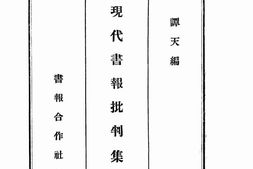 譚天編
現代書報批判集
書報合作社